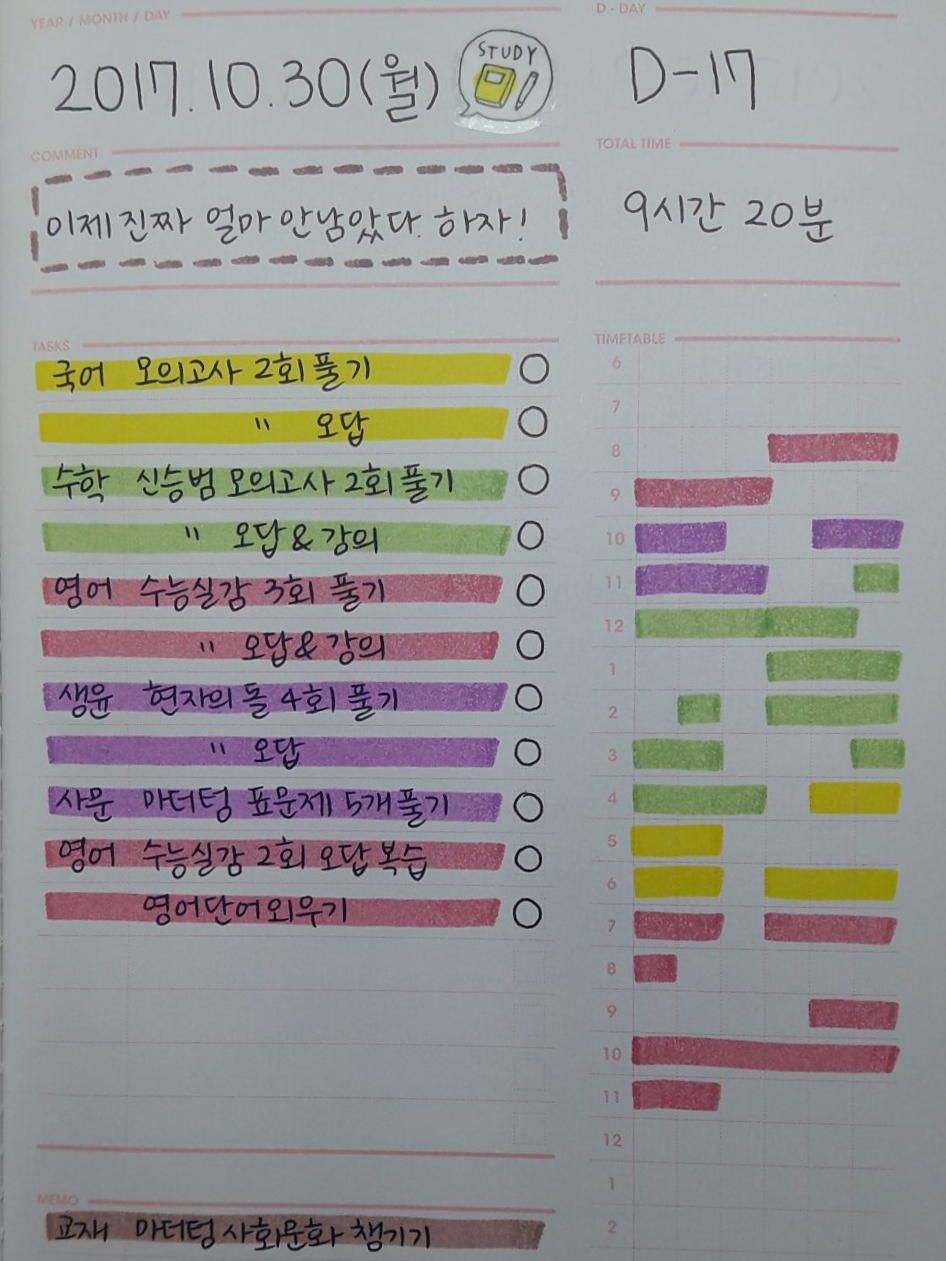 YEAR / MONTH / DAY
2017.10.30(월)
STUDY
D - DAY
D-17
COMMENT
이제 진짜 얼마 안남았다. 하자!
TOTAL TIME
9시간 20분
TASKS
국어 모의고사 2회 풀기
〃 오답
수학 신승범 모의고사 2회 풀기
〃 오답 & 강의
영어 수능실감 3회 풀기
〃 오답 & 강의
생윤 현자의 돌 4회 풀기
〃 오답
사문 마더텅 표문제 5개 풀기
영어 수능실감 2회 오답 복습
영어단어외우기
TIMETABLE
6
7
8
9
10
11
12
1
2
3
4
5
6
7
8
9
10
11
12
1
2
MEMO
교재 마더텅 사회문화 챙기기